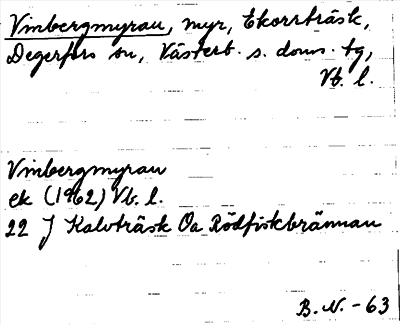 Vinbergmyran, myr, Ekorrträsk,
Degerfors sn, Västerb. s. doms. tg,
Vb. l.
Vinbergmyran
ek (1962) Vb. l.
22 J Kalvträsk Oa Rödfiskbrännan
B. N. -63